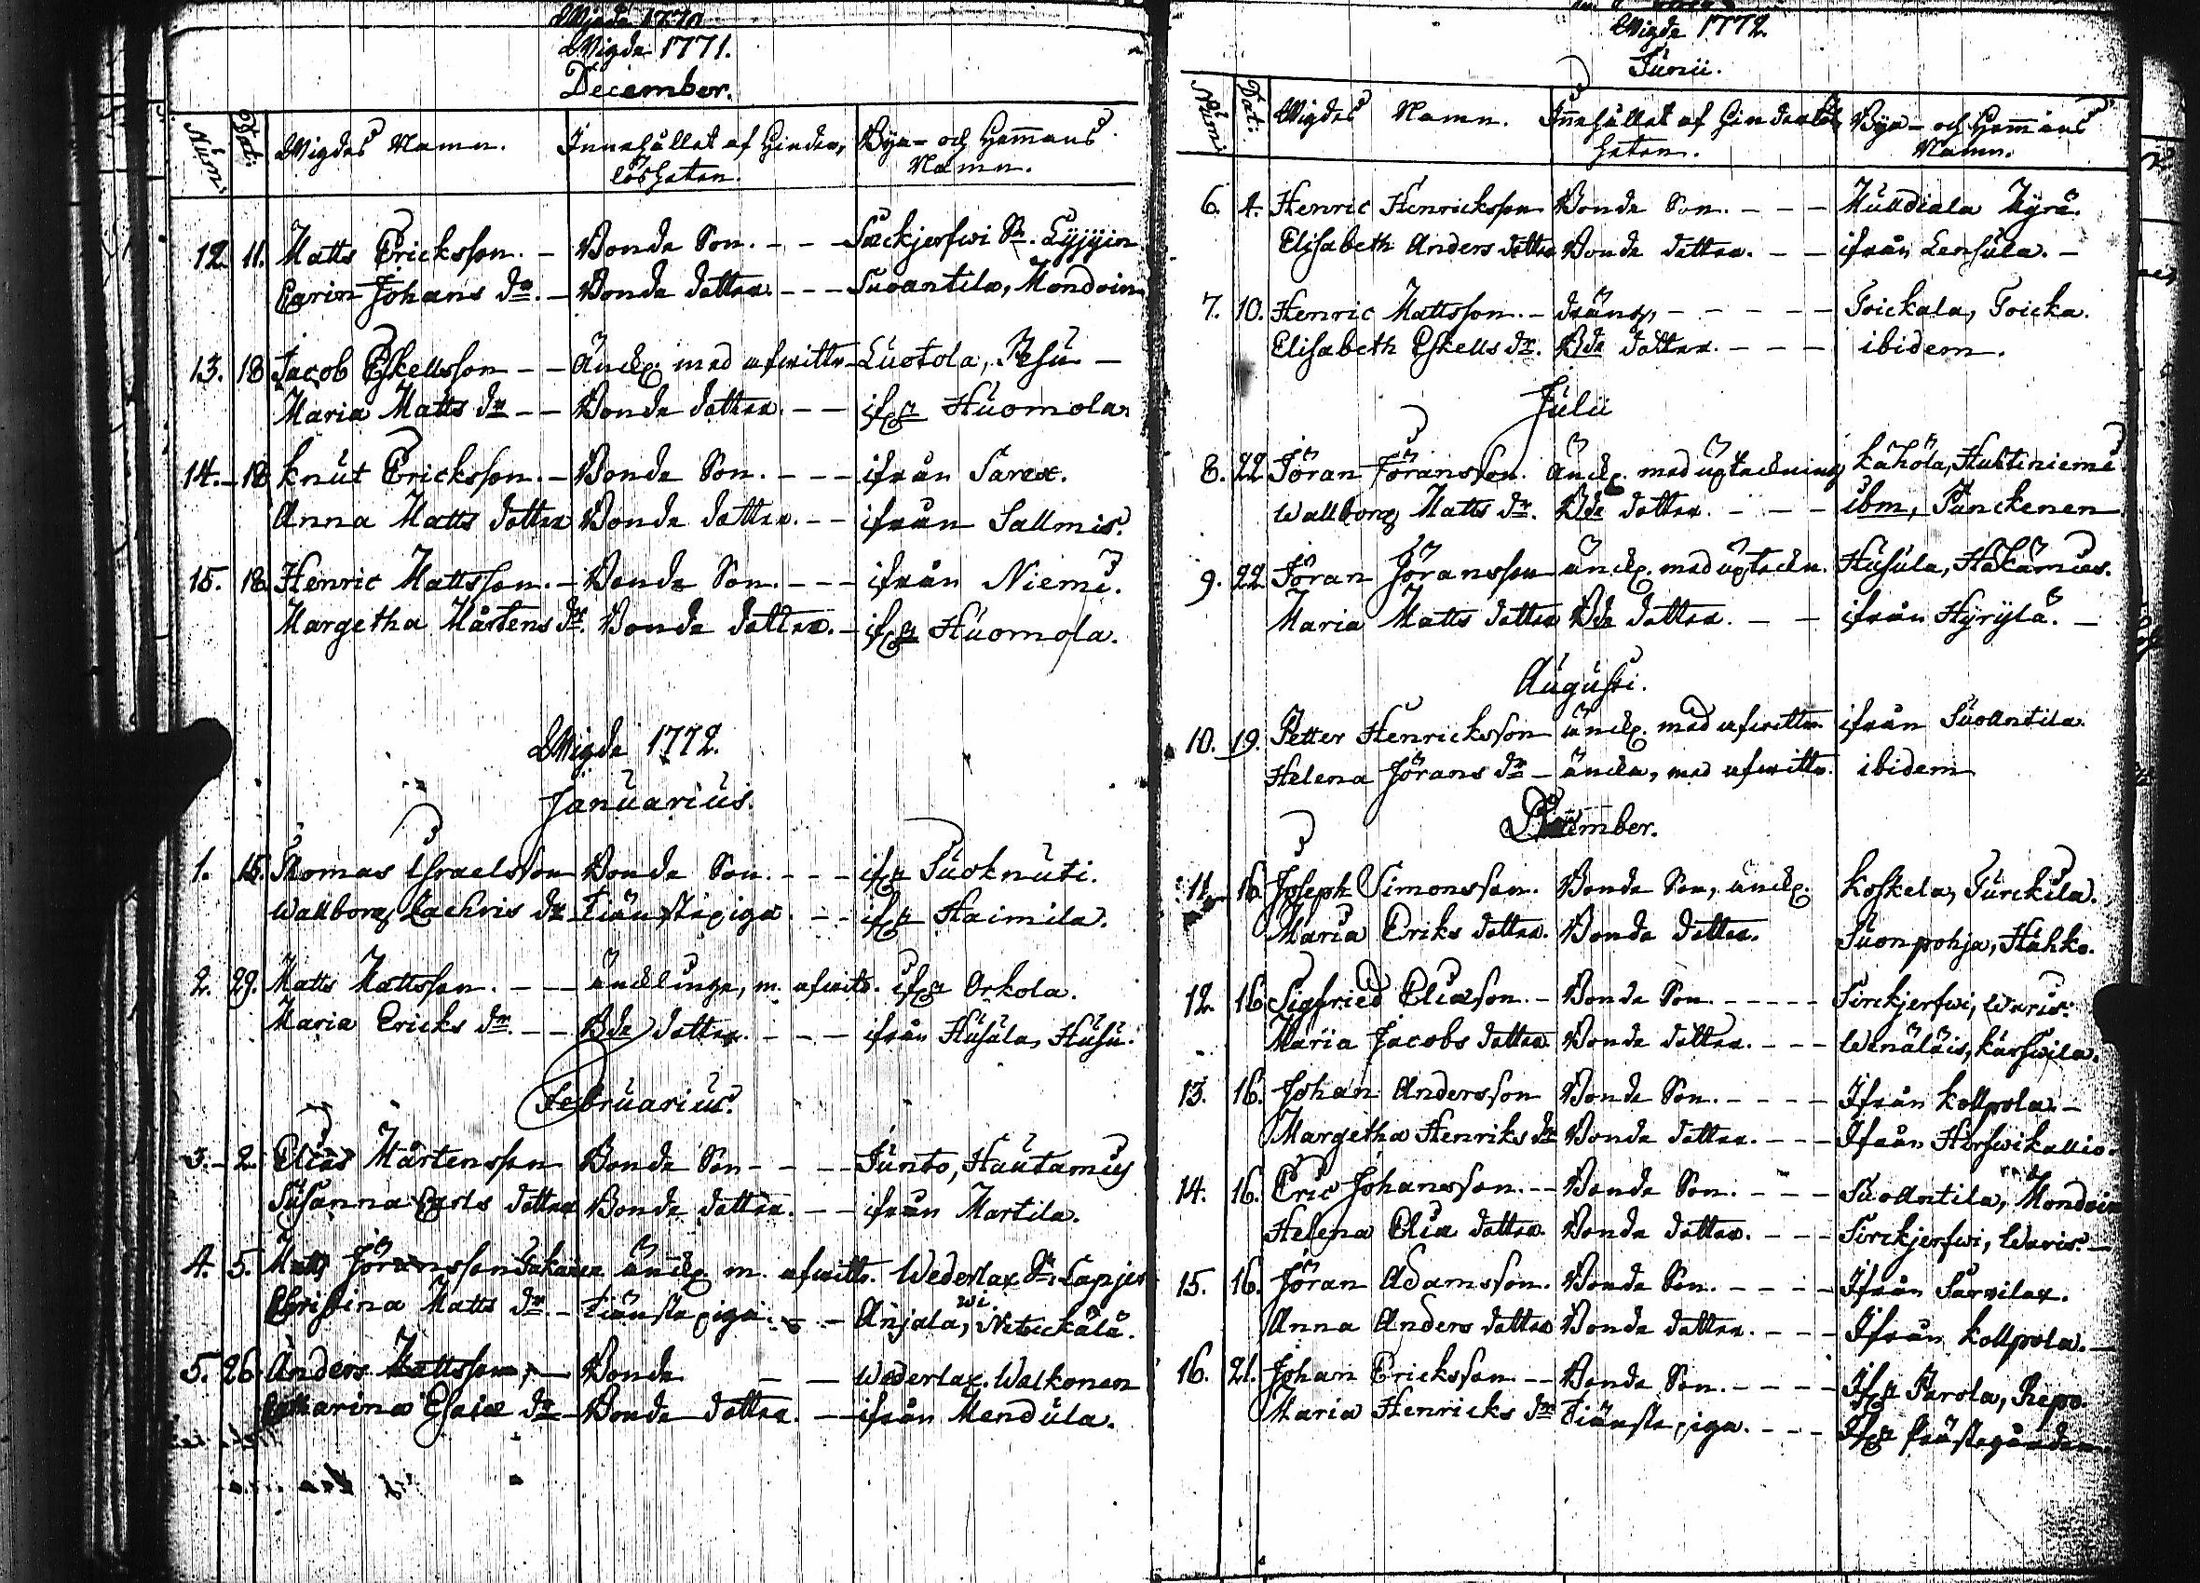 Wigde 1770
Wigde 1771.
December.
Num: Dat: Wigdas Namn. Innehållet af Hinder, Bya- och Hem̄ans
lösheten. Namn.
12. 11. Matts Ericksson. - Bonde Son. - - - Säckjerfwi Sn. Lyjyin
Carin Johans dr. - Bonde dotter - - - Suoantila, Mondoin
13. 18 Jacob Eskellsson - - Änckl. med afwittr. Luotola, Pesu -
Maria Matts dr - - Bonde dotter. - - ifrn Huomola.
14. - 18 Knut Ericksson. - Bonde Son. - - - ifrån Sarax.
Anna Matts dotter Bonde dotter. - - ifrån Sallmis.
15. 18. Henric Mattsson. - Bonde Son. - - - ifrån Niemi.
Margetha Mårtens dr. Bonde dotter. - ifrn Huomola.
Wigde 1772.
Januarius.
1. 15. Thomas Israelsson Bonde Son. - - - ifrn Suoknuti.
Wallborg Zachris dr Tiänstepiga. - - ifrn Haimila.
2. 29. Matts Mattsson. - - - äncklinge, m. afwitr. ifrn Orkola.
Maria Ericks dr. - - Bde dotter. - - - ifrån Husula, Husu.
Februarius.
3. - 2. Elias Mårtensson Bonde Son - - - Junto, Hautamus
Susanna Carls dotter Bonde dotter. - - ifrån Martila.
4. 5. Matts Jöransson Sakarin änckl m. afwittr. Wederlax Sn. Lapjer
wi.
Christina Matts dr. - Tiänste piga. - - Anjala, Netickälä.
5. 26 Anders Mattsson, - Bonde - - Wederlax. Walkonen
Catharina Esaiæ dr - Bonde dotter. - ifrån Mendula.
Wigde 1772.
Junii.
Num: Dat: Wigdes Namn. Innehållet af Hinderlös Bya- och Hem̄ans
heten. Namn.
6. 4. Henric Henricksson Bonde Son. - - - Mulldiala Myrä.
Elisabeth Anders dotter Bonde dotter. - - ifrån Lensula. -
7. 10. Henric Mattsson. - dräng, - - - - - Toickala, Toicka.
Elisabeth Eskells dr. Bde dotter. - - - ibidem.
Julii
8. 22 Jöran Jöransson. änckl. med uptechning Kähölä, Huktiniemi
Wallborg Matts dr. Bde dotter. - - - ibm, Pünckenen
9. 22. Jöran Jöransson änckl. med uptechn. Husula, Häkämies.
Maria Matts dotter Bde dotter. - - ifrån Hyrylä. -
Augusti.
10. 19. Petter Henricksson änckl. med afwittr. ifrån Suoantila.
Helena Jörans dr - äncka, med afwittr. ibidem
December.
11. 16. Joseph Simonsson. Bonde Son, änckl. Koskela, Turckila.
Maria Eriks dotter. Bonde dotter. Suonpohja, Hähko.
12. 16 Sigfried Eliæson. - Bonde Son. - - - - - Sirckjerfwi, Waris.
Maria Jacobs dotter Bonde dotter. - - - Wenäläis, Karhwila.
13. 16. Johan Andersson Bonde Son. - - - - Ifrån Kollpola. -
Margetha Henriks dr Bonde dotter. - - - Ifrån Hirfwikallio.
14. 16. Eric Johansson. - - Bonde Son. - - - - Suoantila, Mondoin
Helena Eliæ dotter. Bonde dotter. - - - Sirckjerfwi, Waris. -
15. 16. Jöran Adamsson. Bonde Son. - - - - Ifrån Särwilax.
Anna Anders dotter Bonde dotter. - - - Ifrån Kollpola. -
16. 21. Johan Ericksson. - - Bonde Son. - - - - Ifrn Parola, Repo.
Maria Henricks dr Tiänste piga. - - - Ifrn Prästegården.